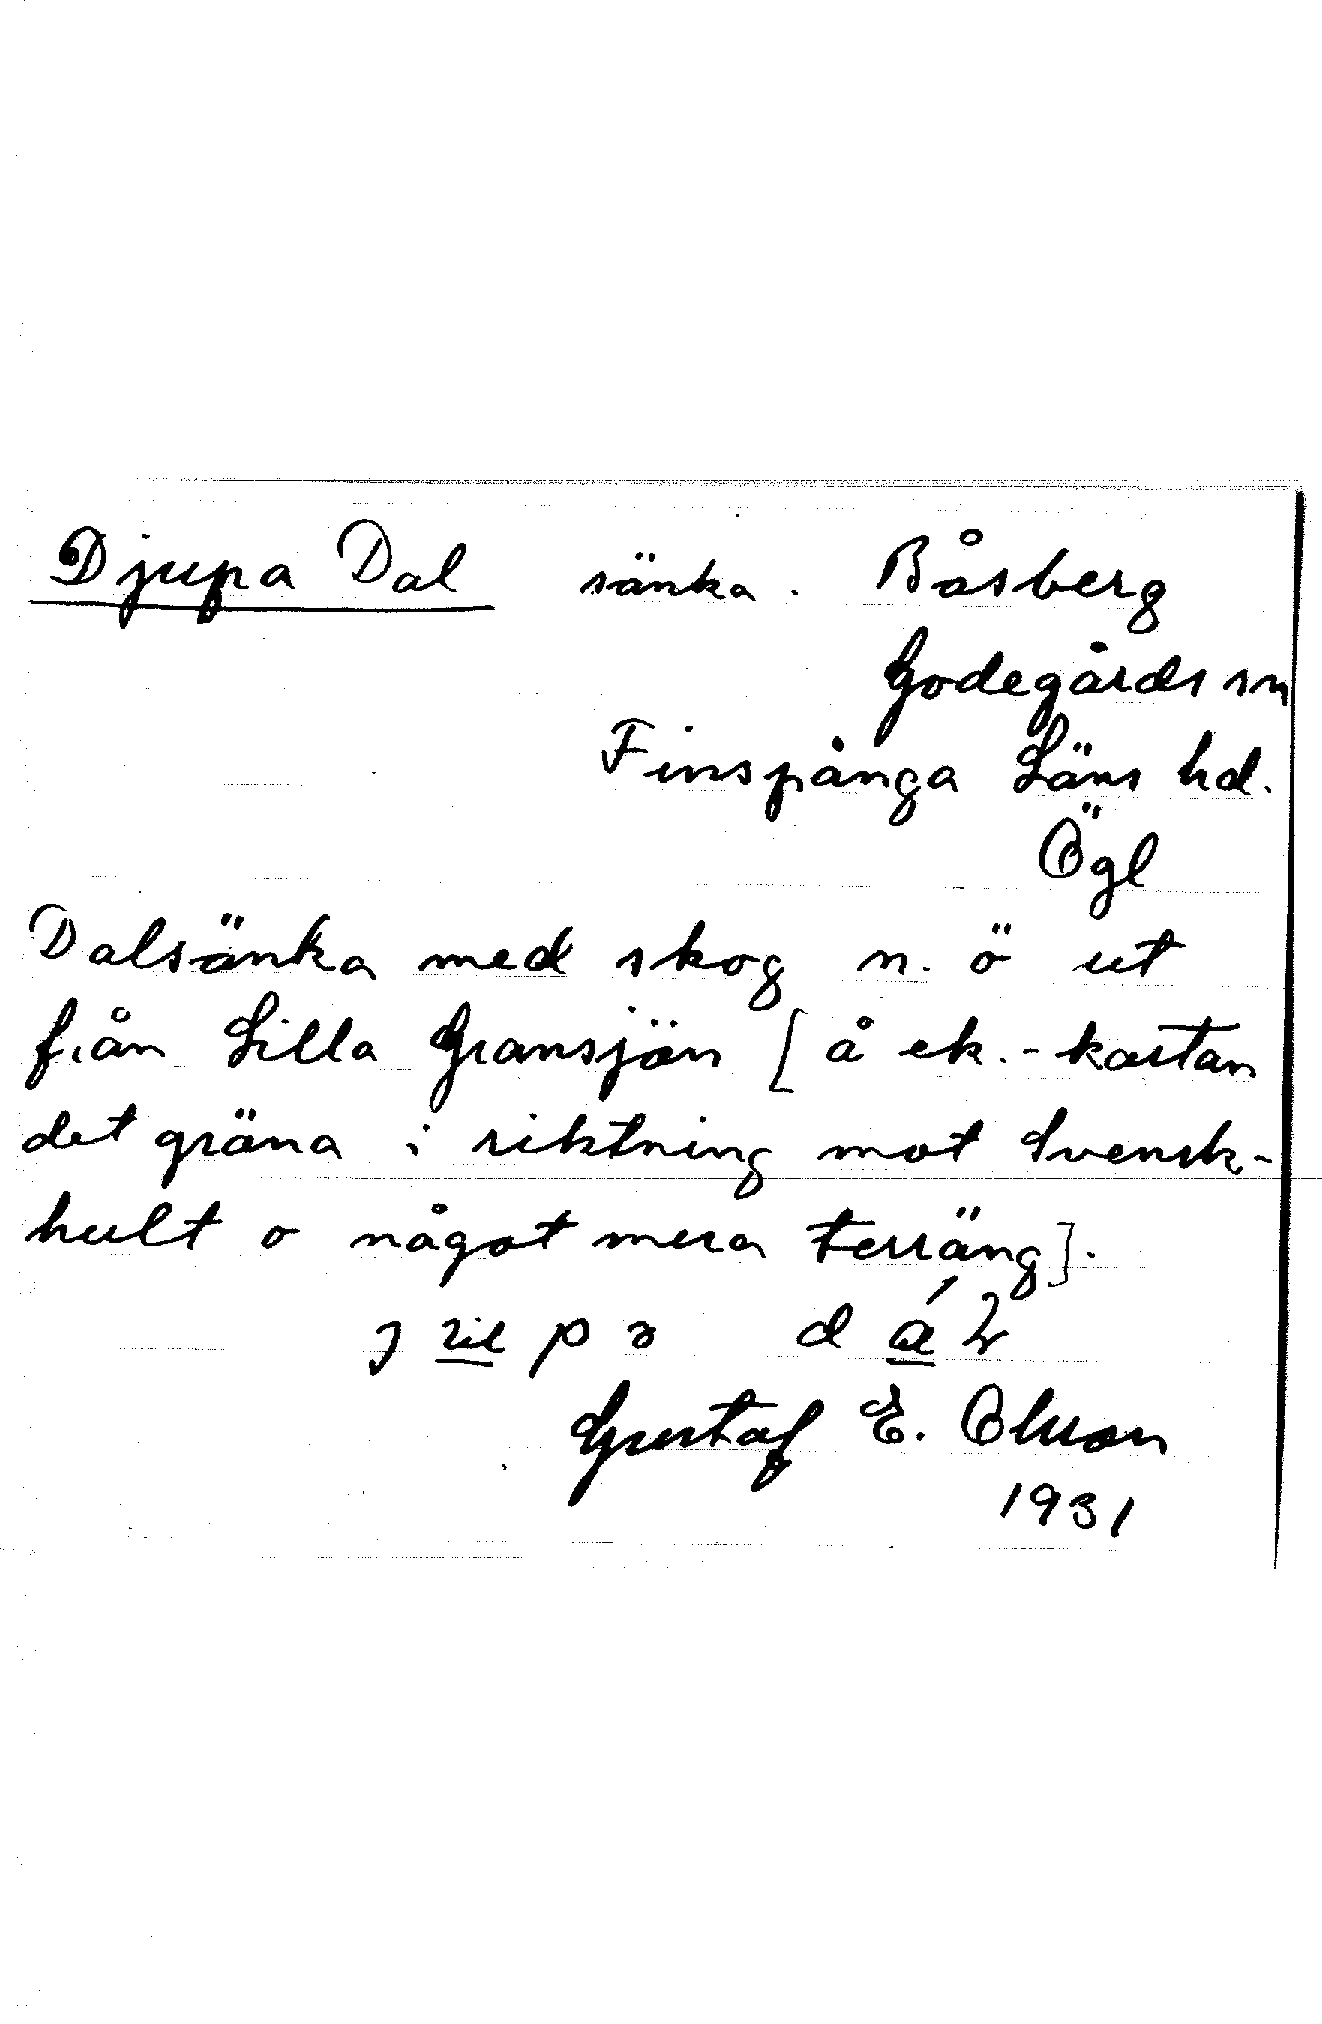 Djupa Dal sänka. Båsberg
Godegårds sn
Finspånga Läns hd.
Ögl
Dalsänka med skog n. ö ut
från Lilla Gransjön [å ek.-kartan
det gröna i riktning mot Svensk-
hult o något mera terräng].
Gustaf E. Olsson
1931